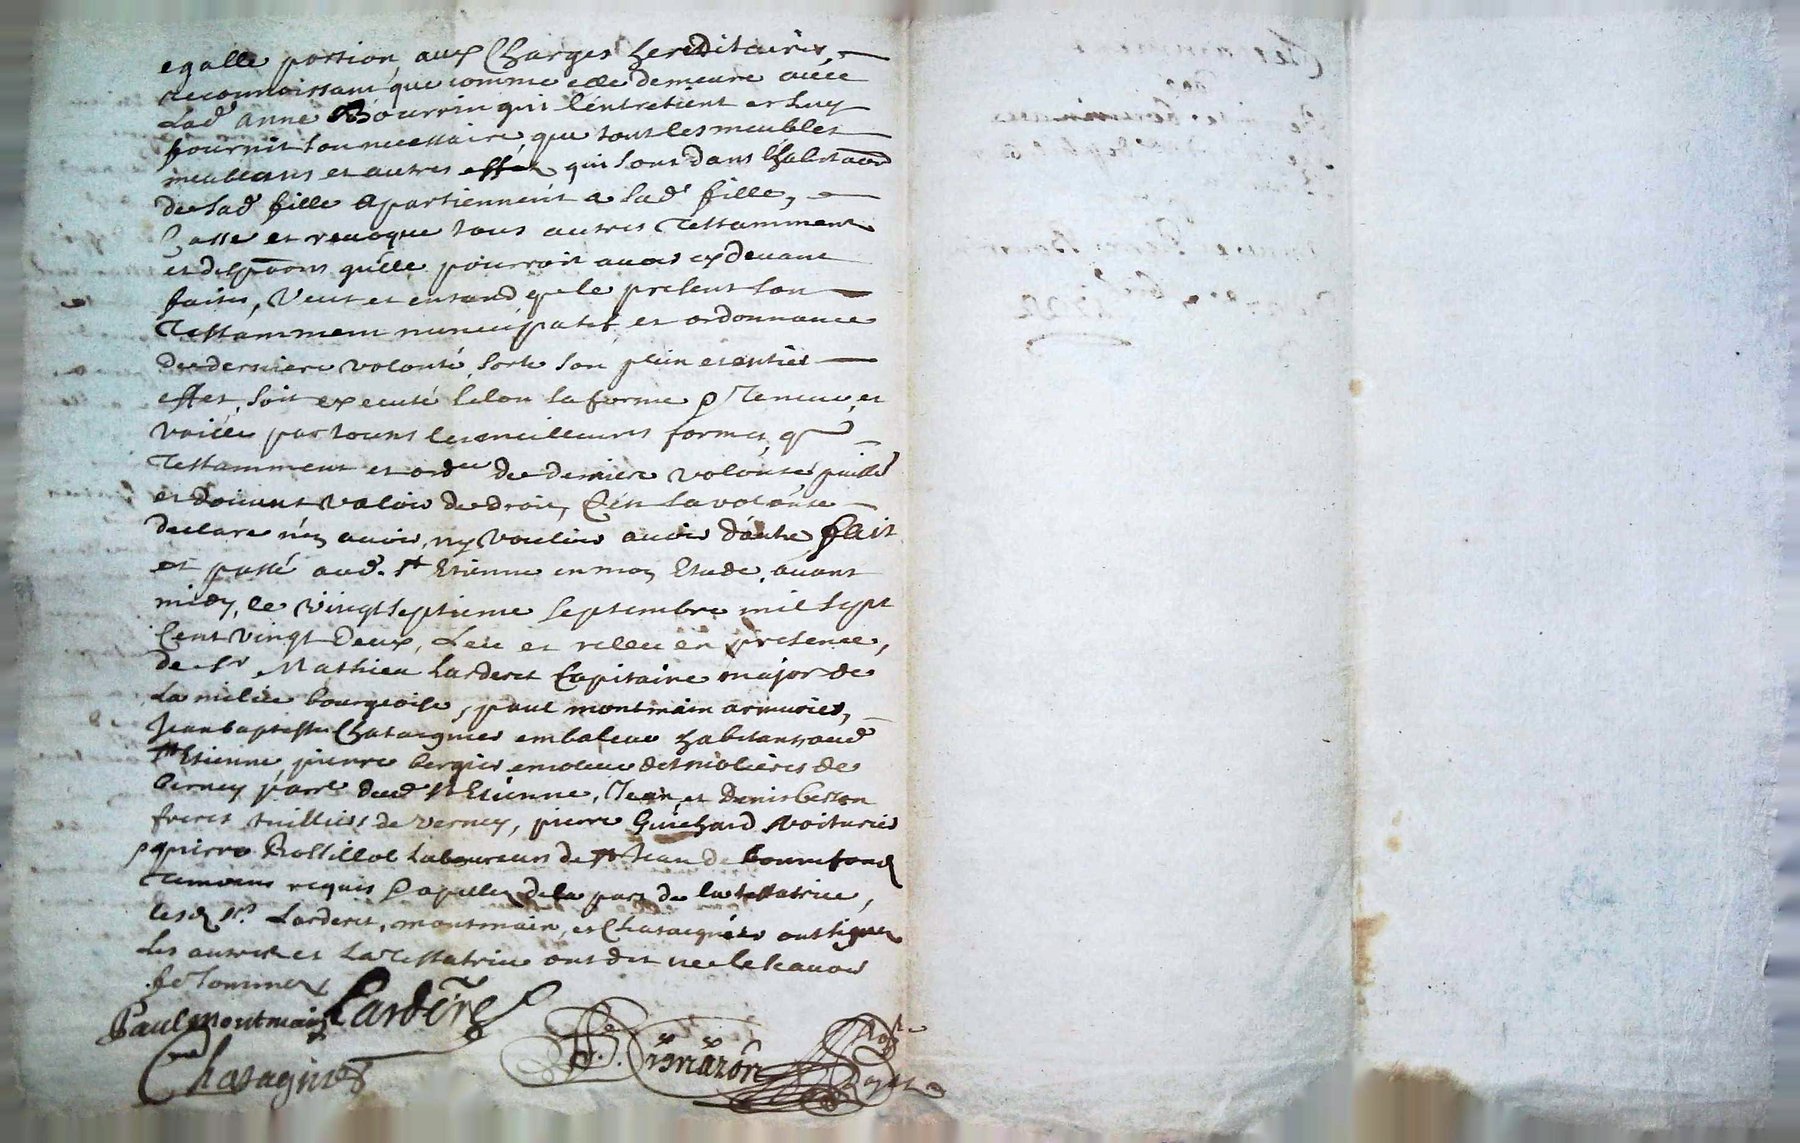 egalle portion aux Charges hereditaires,
reconnoissant que comme elle demeure avec
lad. anne Bourrin qui l'entretient et luy
fournit son necessaire, que tout les meubles
meublans et autres effets qui sont dans l'habitaon
de sad. fille apartiennent a sad. fille,
Casse et revoque tous autres Testamment
et dispoons qu'elle pourroit avoir cydevant
faites, Veut et entand que le present son
Testamment nuncupatif et ordonnance
de derniere volonté, sorte son plein et entier
effet, soit executé selon sa forme & Teneur, et
vaille par toutes les meilleures formes, que
Testamment et ordce de derniere volonté, puisse
et doivent valoir de droit, C'est sa volonte
declare n'en avoir, ny vouloir avoir d'autre, fait
et passé aud. St Etienne en mon Etude, avant
midy, le vingt septieme septembre mil sept
Cent vingt Deux, Leu et releu en presence,
de Sr Mathieu Larderet Capitaine major de
la milice bourgeoise, paul montmain armurier,
Jean baptiste Chataignier embaleur habitants aud.
St Etienne, pierre bergier emoleur des molieres de
berney parr. dud. St Etienne, Jean et Denis besson
freres de verney, pierre Guichard voiturier
& pierre laboureurs de St Jean de bonnefond
Temoins requis & apellez de la part de la testatrice,
lesd. Srs Larderet, montmain, et Chataignier ont signez
Les autres et la Testatrice ont dit ne le scavoir
de ce sommez
Paul montmain Larderet
Chatagnier
1722